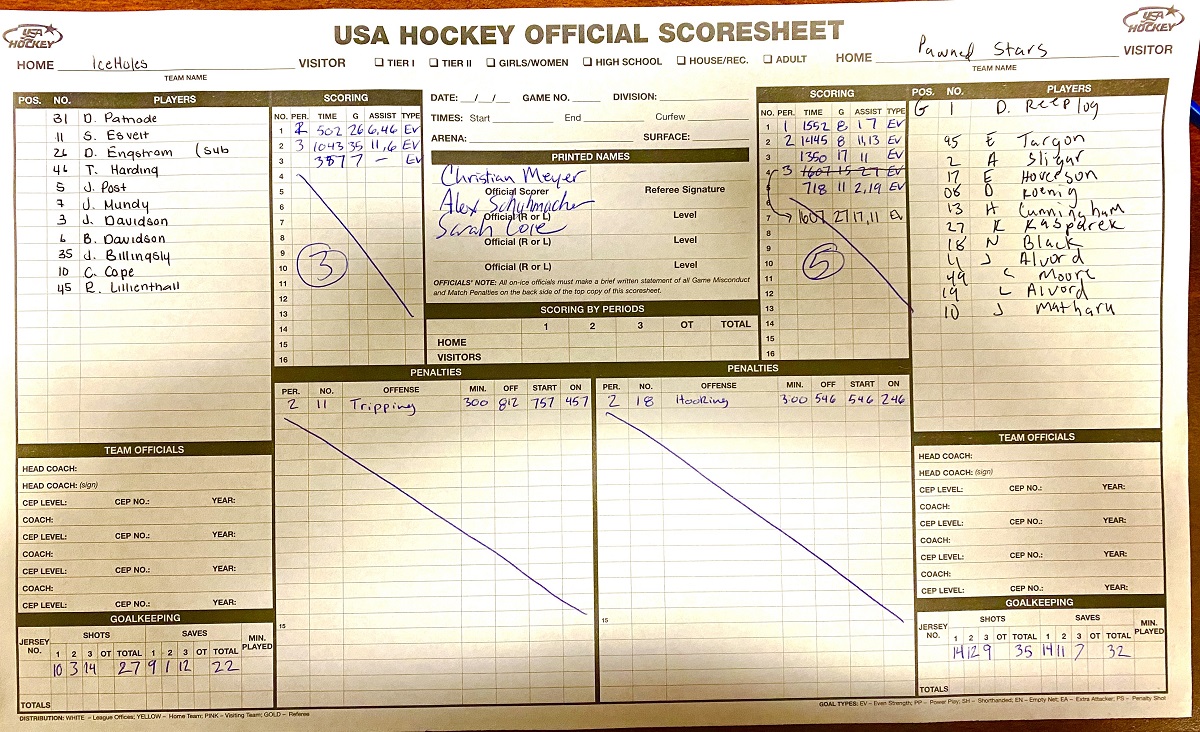 USA HOCKEY OFFICIAL SCORESHEET
USA HOCKEY
USA HOCKEY
HOME IceHoles VISITOR
TEAM NAME
☐ TIER I ☐ TIER II ☐ GIRLS/WOMEN ☐ HIGH SCHOOL ☐ HOUSE/REC. ☐ ADULT
HOME Pawned Stars VISITOR
TEAM NAME
POS. NO. PLAYERS
31 D. Patnode
11 S. Esvelt
26 D. Engstrom (sub
46 T. Harding
5 J. Post
7 J. Mundy
3 J. Davidson
6 B. Davidson
35 J. Billingsly
10 C. Cope
45 R. Lilienthall
SCORING
NO. PER. TIME G ASSIST TYPE
1 2 502 26 6,46 EV
2 3 1043 35 11,6 EV
3 357 7 – EV
4
5
6
7
8
9
10
11
12
13
14
15
16
3
DATE: _/_/_ GAME NO. DIVISION:
TIMES: Start End Curfew
ARENA: SURFACE:
PRINTED NAMES
Christian Meyer
Official Scorer Referee Signature
Alex Schuhmacher
Official (R or L) Level
Sarah Cole
Official (R or L) Level
Official (R or L) Level
OFFICIALS' NOTE: All on-ice officials must make a brief written statement of all Game Misconduct
and Match Penalties on the back side of the top copy of this scoresheet.
SCORING BY PERIODS
1 2 3 OT TOTAL
HOME
VISITORS
SCORING
NO. PER. TIME G ASSIST TYPE
1 1 1552 8 17 EV
2 2 1445 8 11,13 EV
3 1350 17 11 EV
4 3 1607 15 27 EV
5 718 11 2,19 EV
6
7 1607 27 17,11 EV
8
9
10
11
12
13
14
15
16
5
POS. NO. PLAYERS
G 1 D. Reeplog
95 E Targon
2 A Sligar
17 E Hoverson
08 D Koenig
13 H Cunningham
27 K Kasparek
18 N Black
4 J Alvord
49 C Moore
19 L Alvord
10 J Matharu
PENALTIES
PER. NO. OFFENSE MIN. OFF START ON
2 11 Tripping 300 812 757 457
15
PENALTIES
PER. NO. OFFENSE MIN. OFF START ON
2 18 Hooking 300 546 546 246
15
TEAM OFFICIALS
HEAD COACH:
HEAD COACH: (sign)
CEP LEVEL: CEP NO.: YEAR:
COACH:
CEP LEVEL: CEP NO.: YEAR:
COACH:
CEP LEVEL: CEP NO.: YEAR:
COACH:
CEP LEVEL: CEP NO.: YEAR:
GOALKEEPING
JERSEY NO. SHOTS SAVES MIN. PLAYED
1 2 3 OT TOTAL 1 2 3 OT TOTAL
10 3 14 27 9 1 12 22
TOTALS
TEAM OFFICIALS
HEAD COACH:
HEAD COACH: (sign)
CEP LEVEL: CEP NO.: YEAR:
COACH:
CEP LEVEL: CEP NO.: YEAR:
COACH:
CEP LEVEL: CEP NO.: YEAR:
COACH:
CEP LEVEL: CEP NO.: YEAR:
GOALKEEPING
JERSEY NO. SHOTS SAVES MIN. PLAYED
1 2 3 OT TOTAL 1 2 3 OT TOTAL
14 12 9 35 14 11 7 32
TOTALS
DISTRIBUTION: WHITE – League Offices; YELLOW – Home Team; PINK – Visiting Team; GOLD – Referee
GOAL TYPES: EV – Even Strength; PP – Power Play; SH – Shorthanded; EN – Empty Net; EA – Extra Attacker; PS – Penalty Shot